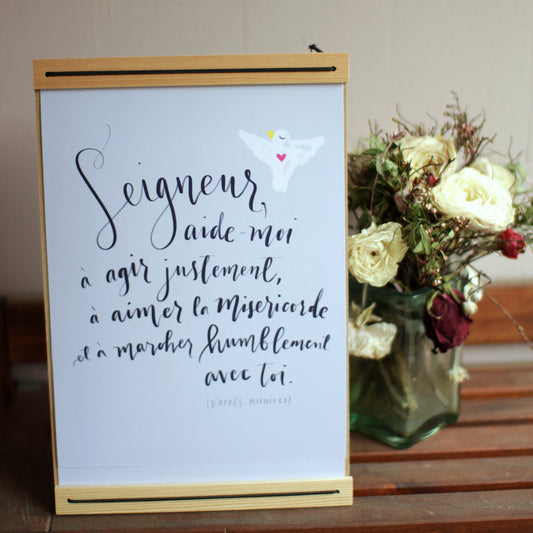 Seigneur,
aide-moi
à agir justement,
à aimer la Misericorde
et à marcher humblement
avec toi.
(D'APRÈS MICHÉE 6,8)